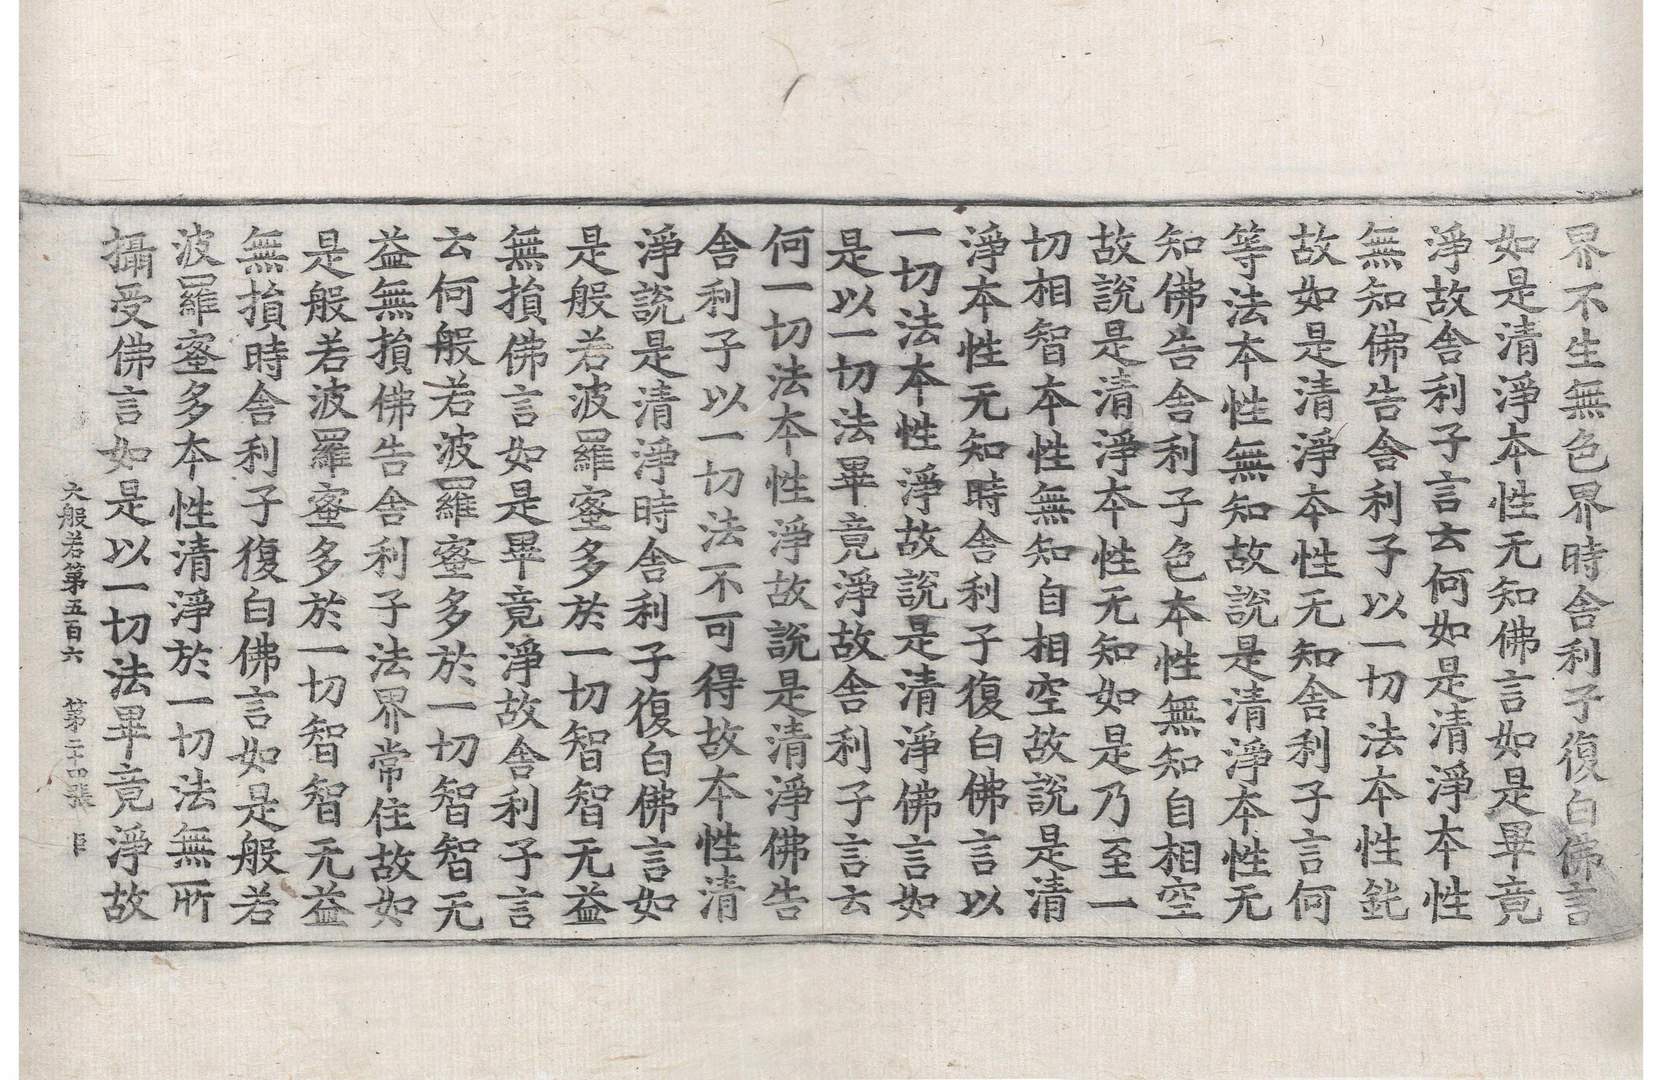 界不生無色界時舎利子復白佛言
如是清淨本性无知佛言如是畢竟
淨故舎利子言云何如是清淨本性
無知佛告舎利子以一切法本性鈍
故如是清淨本性无知舎利子言何
等法本性無知故說是清淨本性无
知佛告舎利子色本性無知自相空
故說是清淨本性无知如是乃至一
切相智本性無知自相空故說是清
淨本性无知時舎利子復白佛言以
一切法本性淨故說是清淨佛言如
是以一切法畢竟淨故舎利子言云
何一切法本性淨故說是清淨佛告
舎利子以一切法不可得故本性清
淨說是清淨時舎利子復白佛言如
是般若波羅蜜多於一切智智无益
無損佛言如是畢竟淨故舎利子言
云何般若波羅蜜多於一切智智无
益無損佛告舎利子法界常住故如
是般若波羅蜜多於一切智智无益
無損時舎利子復白佛言如是般若
波羅蜜多本性清淨於一切法無所
攝受佛言如是以一切法畢竟淨故
大般若第五百六 第二十四張